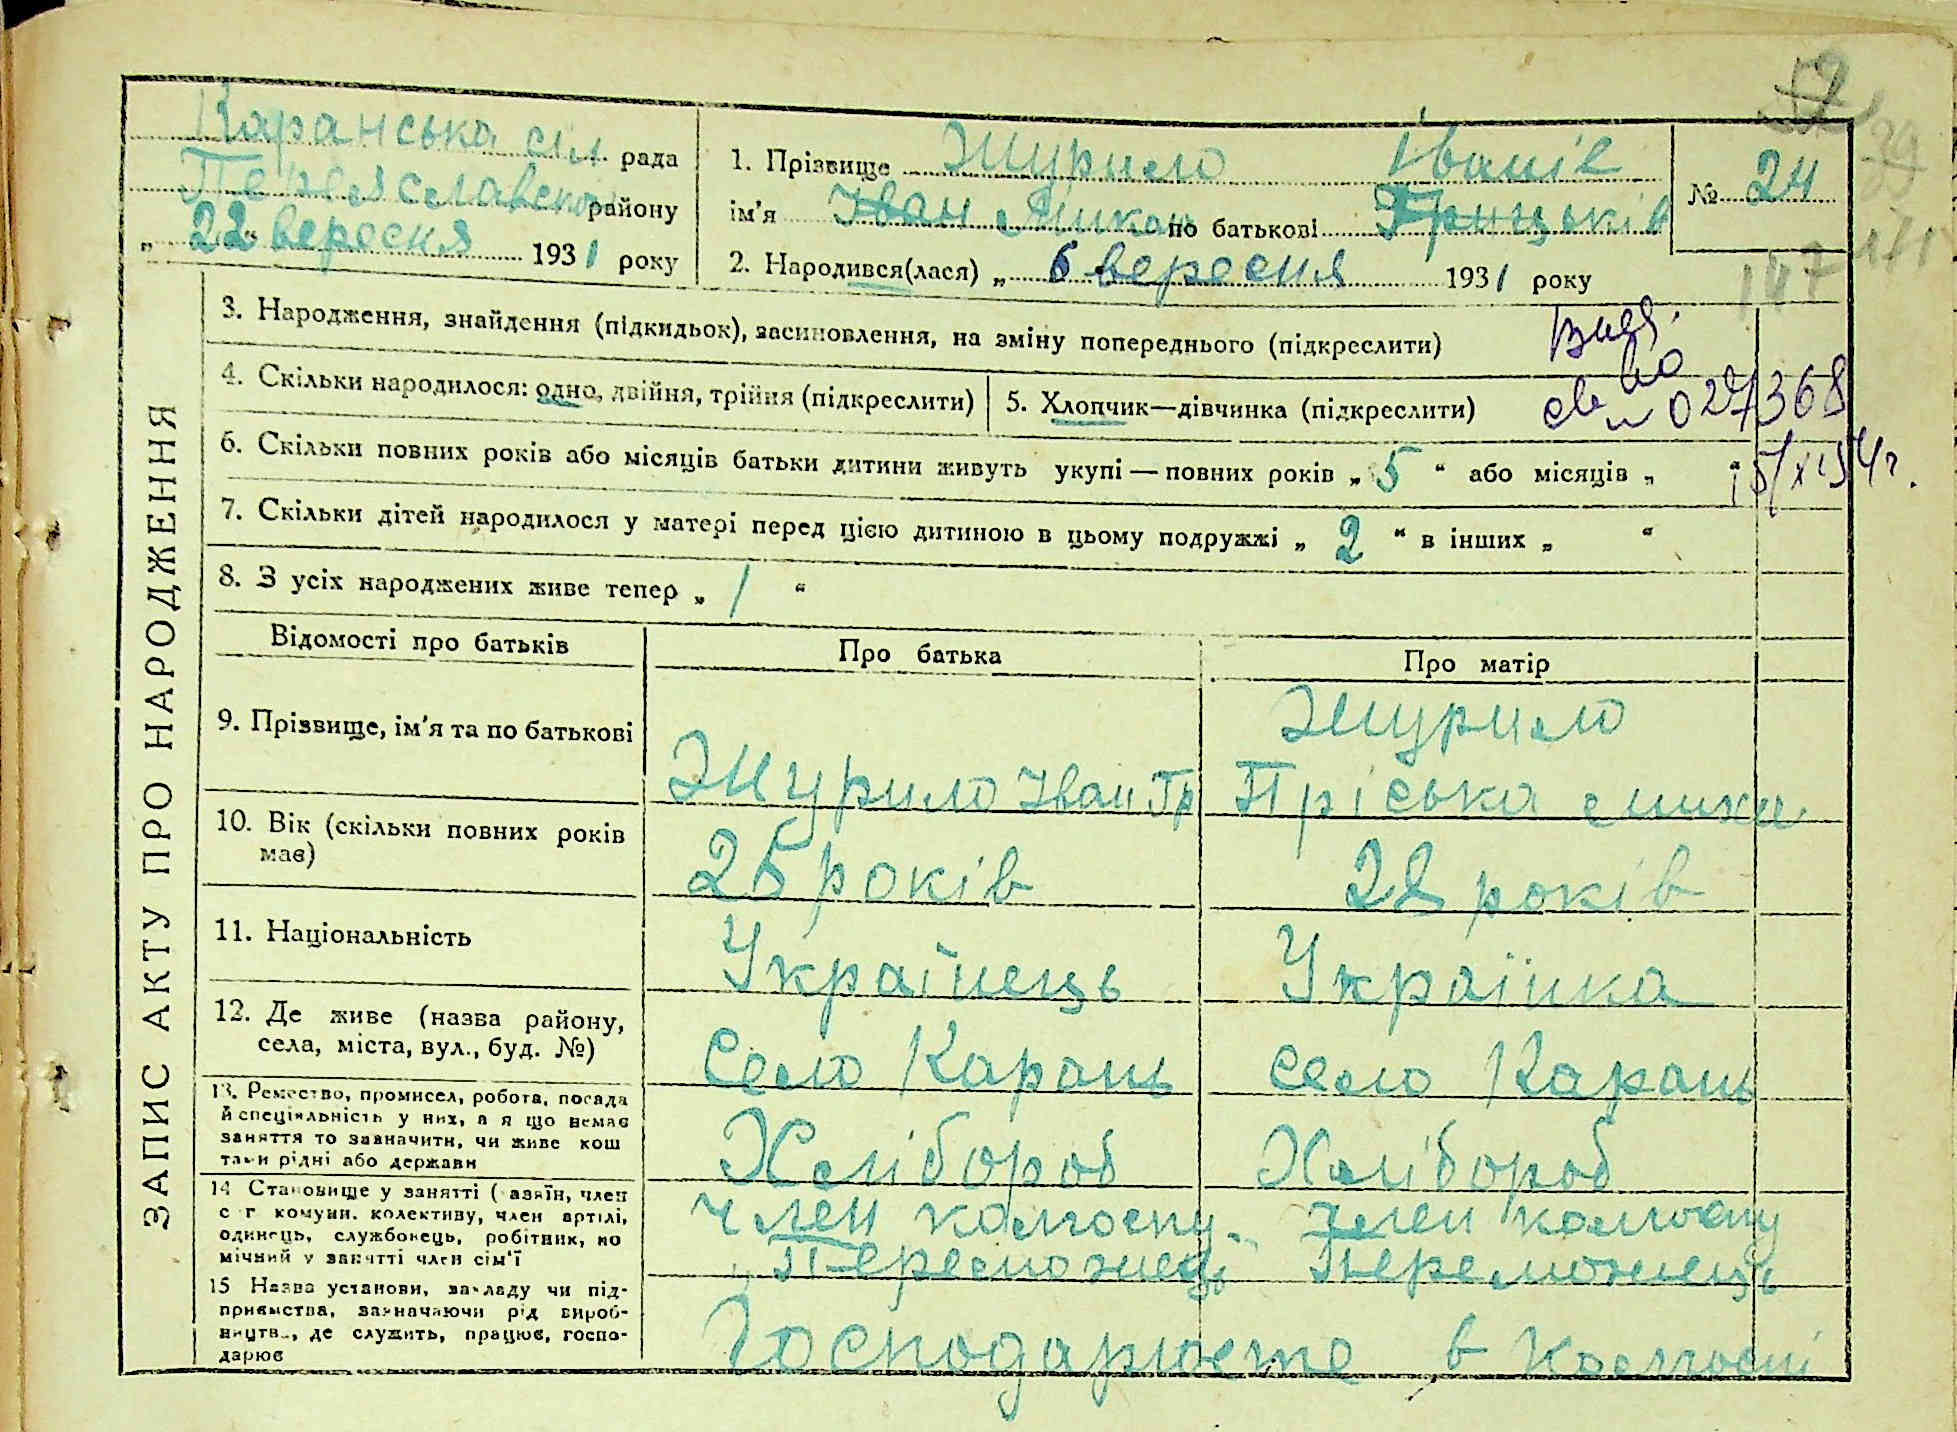 Каранська сіл рада
Переяславсько району
„ 22 “ вересня 1931 року
1. Прізвище Журило Іванів
ім'я Іван Микола по батькові Грицьків
2. Народився(лася) „ 6 вересня 1931 року
№ 24
147
171
ЗАПИС АКТУ ПРО НАРОДЖЕННЯ
3. Народження, знайдення (підкидьок), засиновлення, на зміну попереднього (підкреслити)
4. Скільки народилося: одно, двійня, трійня (підкреслити)
5. Хлопчик—дівчинка (підкреслити)
027368
6. Скільки повних років або місяців батьки дитини живуть укупі — повних років „ 5 “ або місяців „ “
7. Скільки дітей народилося у матері перед цією дитиною в цьому подружжі „ 2 “ в інших „ “
8. З усіх народжених живе тепер „ 1 “
Відомості про батьків Про батька Про матір
9. Прізвище, ім'я та по батькові
Журило Іван Гр
Журило
Пріська Миха
10. Вік (скільки повних років має)
25 років
28 років
11. Національність
Українець
Українка
12. Де живе (назва району,
села, міста, вул., буд. №)
Село Карань
село Карань
13. Ремество, промисел, робота, посада
й спеціяльність у них, а я що немає
заняття то зазначити, чи живе кош
тами рідні або держави
Хлібороб
Хлібороб
14 Становище у занятті (азяїн, член
с г комуни. колективу, член артілі,
одинець, службовець, робітник, по
мічний у занятті член сім'ї
член колгоспу
„Переможець
член колгоспу
Переможець
15 Назва установи, закладу чи під-
приємства, зазначаючи рід вироб-
ництв., де служить, працює, госпо-
дарює
Господарюєте в колгоспі